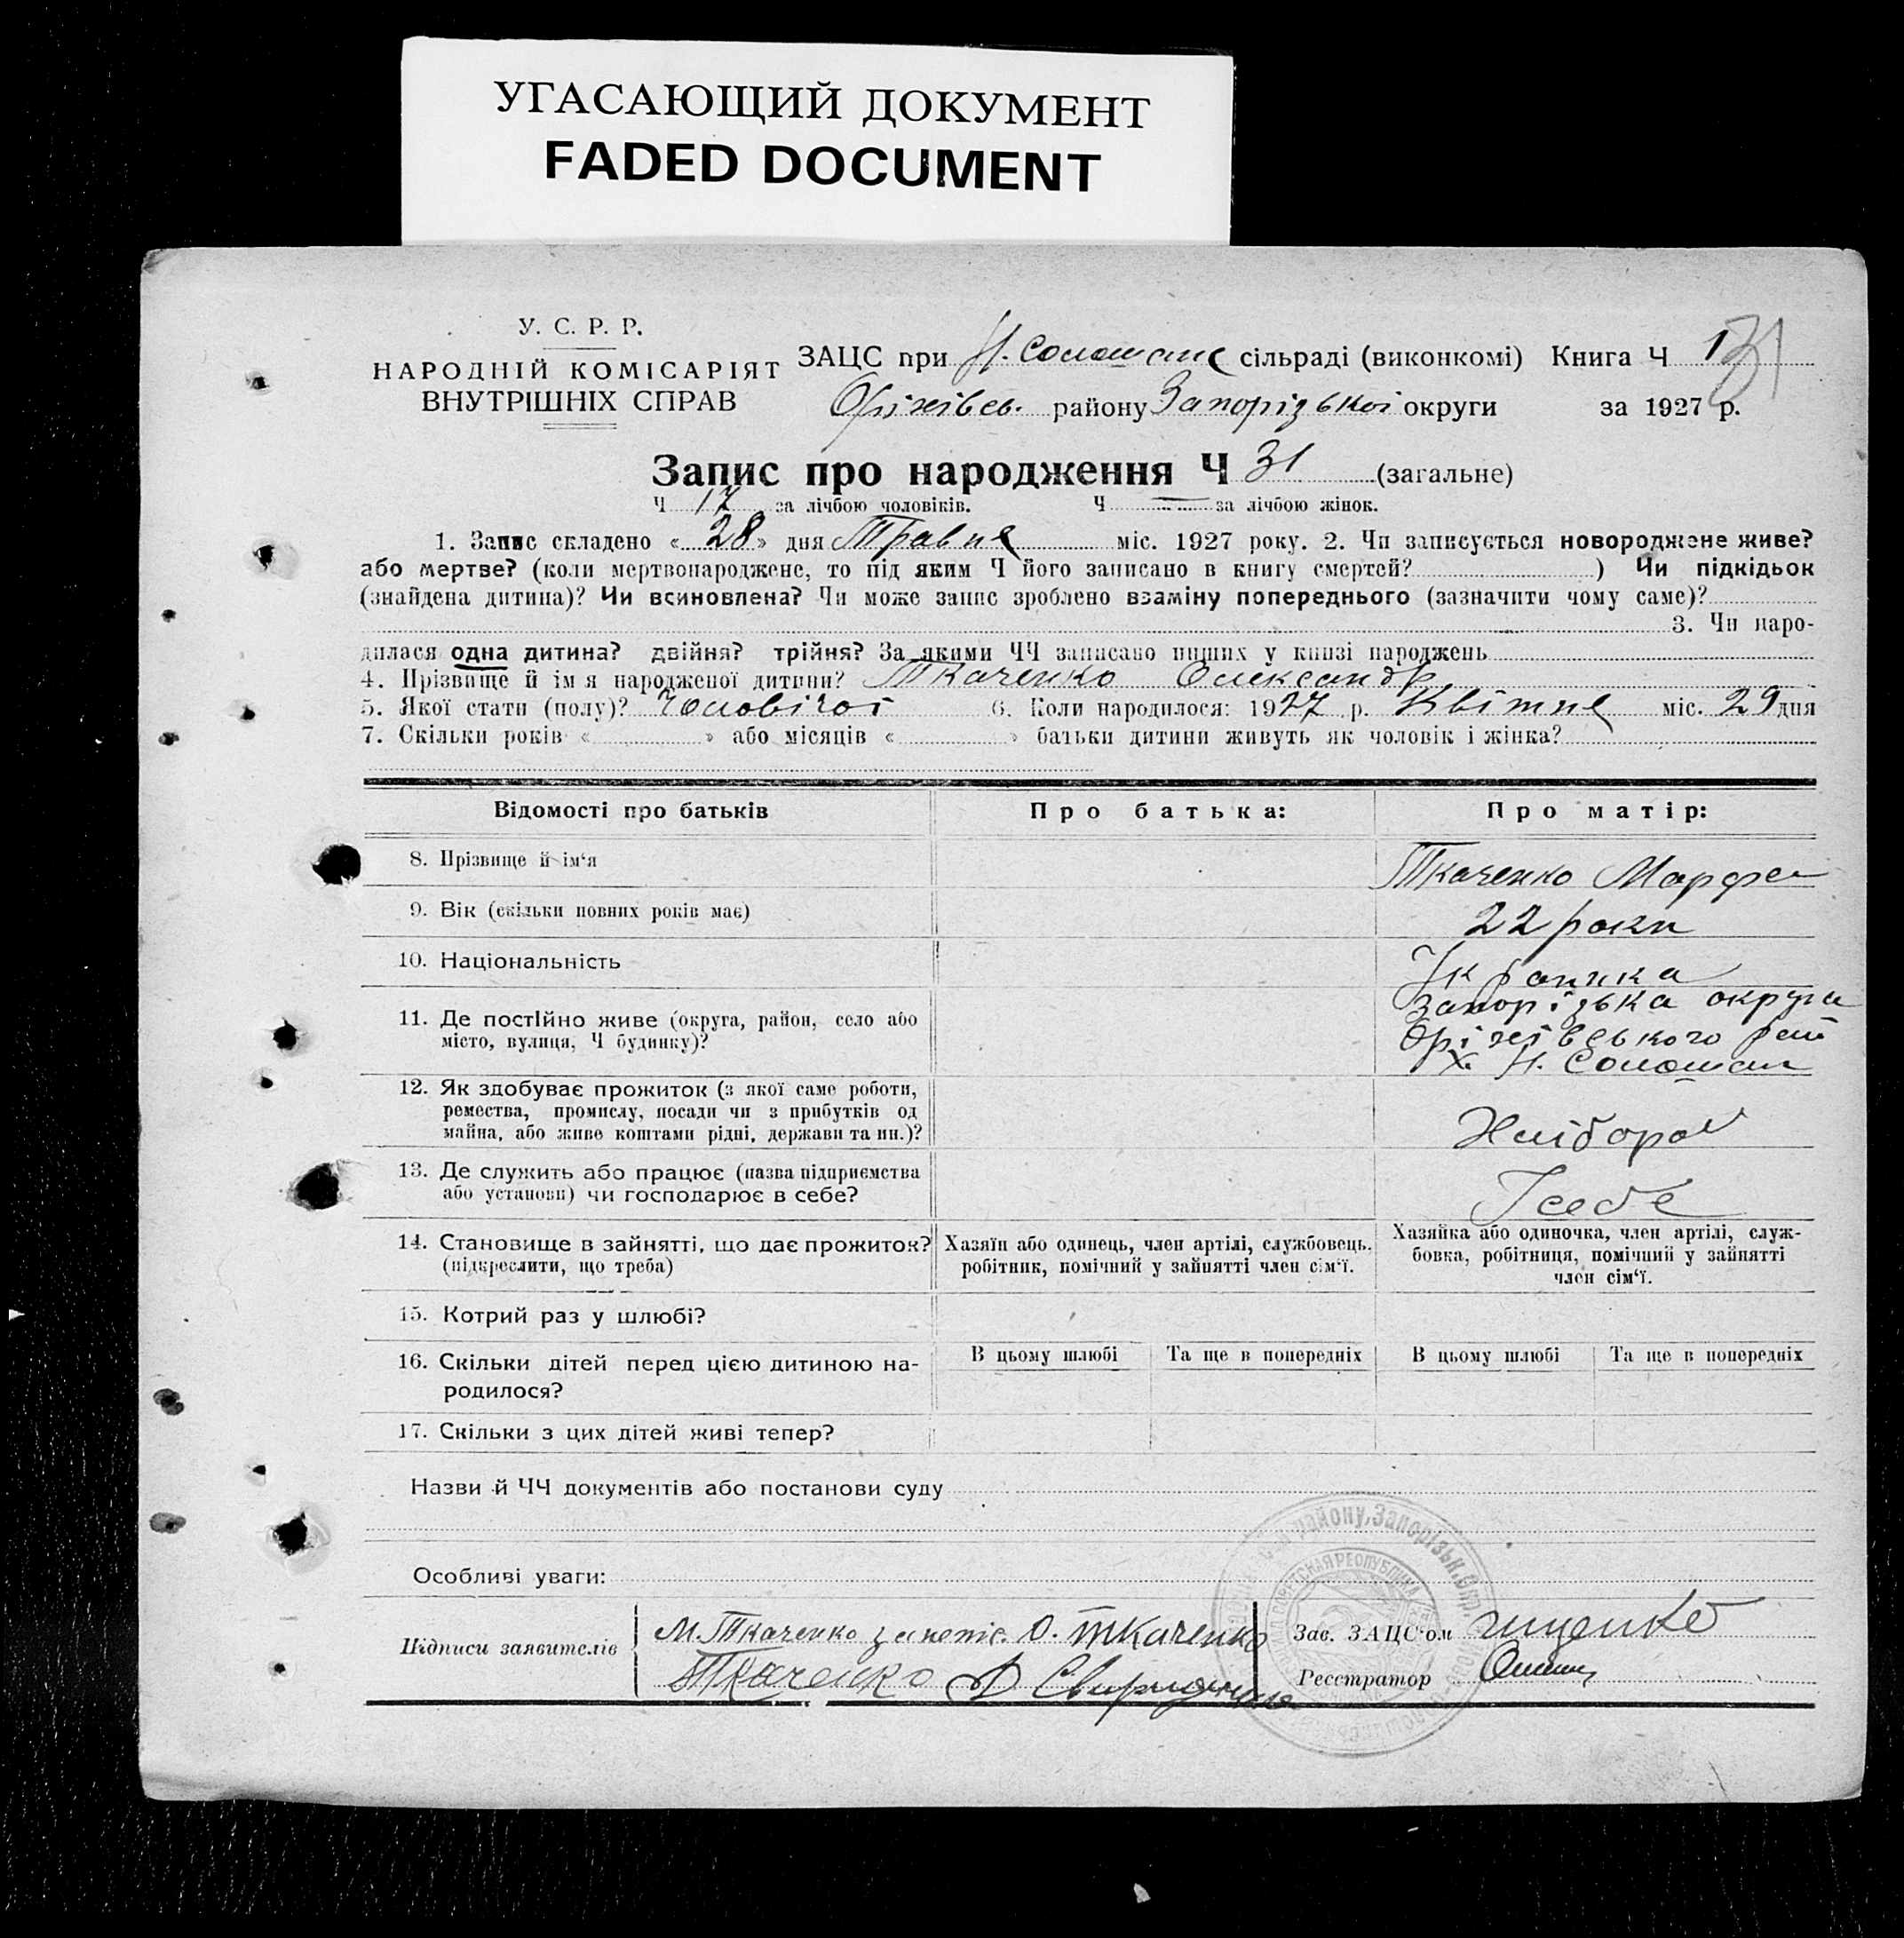 УГАСАЮЩИЙ ДОКУМЕНТ
FADED DOCUMENT
У. С. Р. Р.
НАРОДНІЙ КОМІСАРІЯТ
ВНУТРІШНІХ СПРАВ
ЗАЦС при Н. Солошане сільраді (виконкомі) Книга Ч 1 31
Оріхівсь. району Запорізької округи за 1927 р.
Запис про народження Ч 31 (загальне)
Ч 17 за лічбою чоловіків. Ч — за лічбою жінок.
1. Запис складено « 28 » дня Травня міс. 1927 року. 2. Чи записується новороджене живе?
або мертве? (коли мертвонароджене, то під яким Ч його записано в книгу смертей? ) Чи підкідьок
(знайдена дитина)? Чи всиновлена? Чи може запис зроблено взаміну попереднього (зазначити чому саме)?
3. Чи наро-
дилася одна дитина? двійня? трійня? За якими ЧЧ записано инших у книзі народжень
4. Прізвище й ім'я народженої дитини? Ткаченко Олександр
5. Якої стати (полу)? Чоловічої 6. Коли народилося: 1927 р. Квітня міс. 29 дня
7. Скільки років « » або місяців « » батьки дитини живуть як чоловік і жінка?
Відомості про батьків Про батька: Про матір:
8. Прізвище й ім'я Ткаченко Марфа
9. Вік (скільки повних років має) 22 роки
10. Національність Українка
11. Де постійно живе (округа, район, село або
місто, вулиця, Ч будинку)?
Запорізька округа
Оріхівського рай
х. Н. Солошан
12. Як здобуває прожиток (з якої саме роботи,
ремества, промислу, посади чи з прибутків од
майна, або живе коштами рідні, держави та ин.)?
Хлібороб
13. Де служить або працює (назва підприємства
або установи) чи господарює в себе?
У себе
14. Становище в зайнятті, що дає прожиток?
(підкреслити, що треба)
Хазяїн або одинець, член артілі, службовець.
робітник, помічний у зайнятті член сім'ї.
Хазяйка або одиночка, член артілі, служ-
бовка, робітниця, помічний у зайнятті
член сім'ї.
15. Котрий раз у шлюбі?
16. Скільки дітей перед цією дитиною на-
родилося?
В цьому шлюбі Та ще в попередніх В цьому шлюбі Та ще в попередніх
17. Скільки з цих дітей живі тепер?
Назви й ЧЧ документів або постанови суду
Особливі уваги:
району, Запорізьк. Окр.
Підписи заявителів М. Ткаченко О. Ткаченко
Ткаченко
Зав. ЗАЦС'ом
Реєстратор